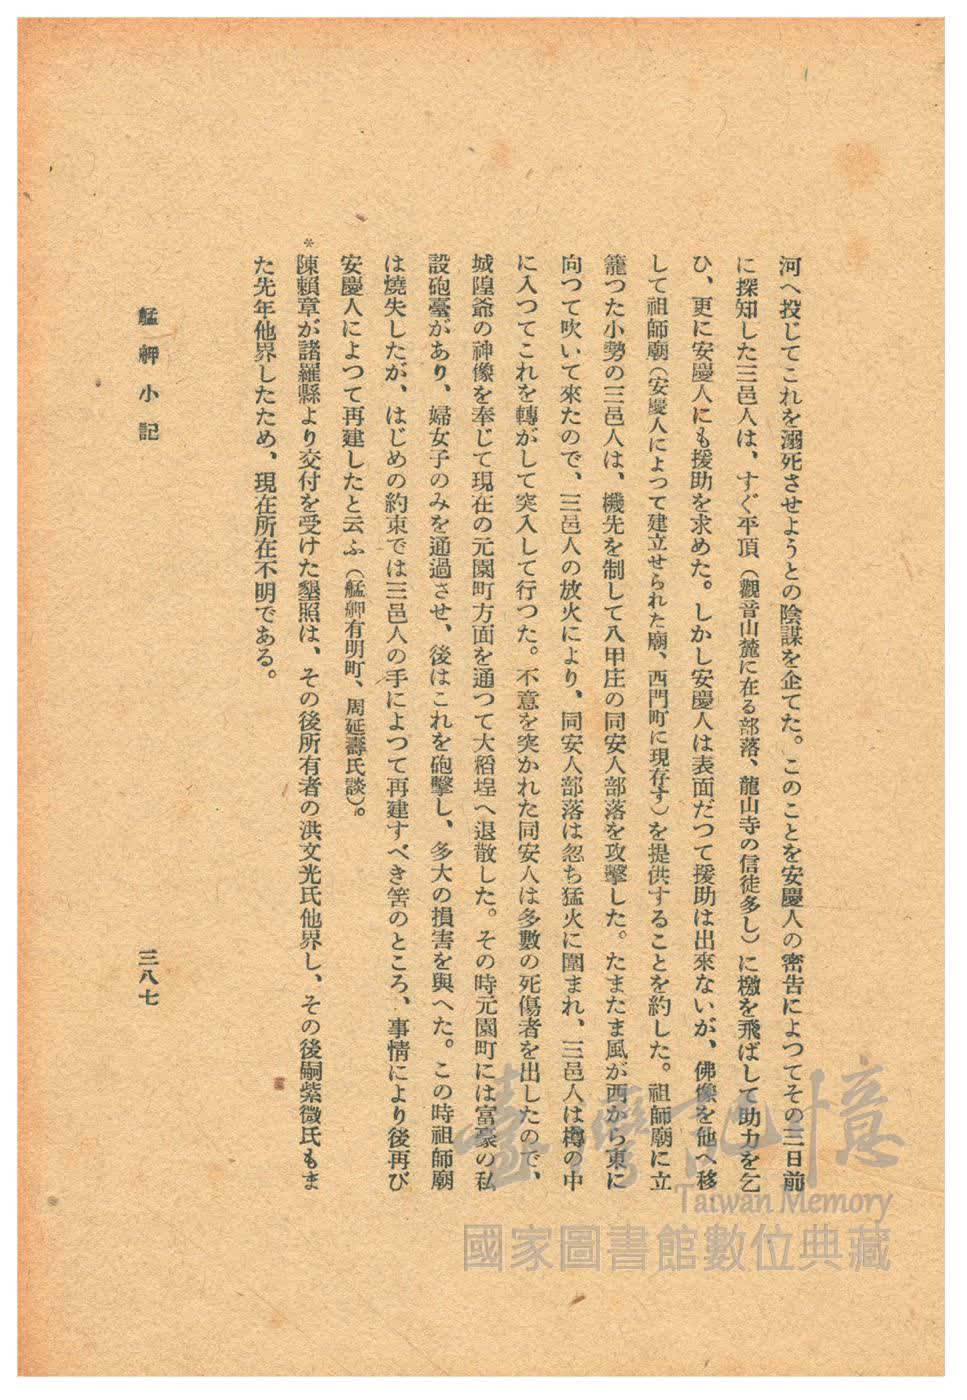 河へ投じてこれを溺死させようとの陰謀を企てた。このことを安慶人の密告によつてその三日前
に探知した三邑人は、すぐ平頂（觀音山麓に在る部落、龍山寺の信徒多し）に檄を飛ばして助力を乞
ひ、更に安慶人にも援助を求めた。しかし安慶人は表面だつて援助は出來ないが、佛像を他へ移
して祖師廟（安慶人によつて建立せられた廟、西門町に現存す）を提供することを約した。祖師廟に立
籠つた小勢の三邑人は、機先を制して八甲庄の同安人部落を攻擊した。たまたま風が西から東に
向つて吹いて來たので、三邑人の放火により、同安人部落は忽ち猛火に圍まれ、三邑人は樽の中
に入つてこれを轉がして突入して行つた。不意を突かれた同安人は多數の死傷者を出したので、
城隍爺の神像を奉じて現在の元園町方面を通つて大稻埕へ退散した。その時元園町には富豪の私
設砲臺があり、婦女子のみを通過させ、後はこれを砲擊し、多大の損害を與へた。この時祖師廟
は燒失したが、はじめの約束では三邑人の手によつて再建すべき筈のところ、事情により後再び
安慶人によつて再建したと云ふ（艋舺有明町、周延壽氏談）。
*陳賴章が諸羅縣より交付を受けた墾照は、その後所有者の洪文光氏他界し、その後嗣紫薇氏もま
た先年他界したため、現在所在不明である。
艋舺小記
三八七
臺灣記憶
Taiwan Memory
國家圖書館數位典藏